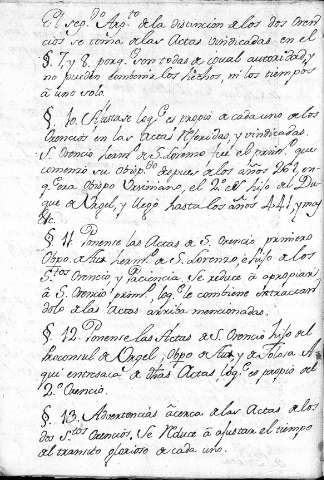 El seg.do Arg.to de la distincion de los dos Oren
cios se toma de las Actas vindicadas en el
§. 7. y 8. porq.e son todas de igual autoridad, y
no pueden combenir los hechos, ni los tiempos
à uno solo.
§. 10. Ajustase loq.e es propio de cada uno de los
Orencios en las Actas referidas, y vindicadas.
S. Orencio herm.o de S. Lorenzo fue el prim.o que
comenzo su Obisp.do despues de los años 261, en
q.e era Obispo Ursiniano, el 2.o hijo del Du
que de Urgel, y llegó hasta los años 441, y mas
&c.
§. 11. Ponense las Actas de S. Orencio primero
Obpo. de herm.o de S. Lorenzo, è hijo de los
S.tos Orencio, y Paciencia, se reduce à apropiar
à S. Orencio prim.o loq.e le combiene entresacan
dolo de las Actas arriba mencionadas.
§. 12. Ponense las Actas de S. Orencio hijo del
Proconsul de Urgel, Obpo de y de Tolosa. A
qui entresaca de dhas Actas, loq.e es propio del
2.o Orencio.
§. 13. Advertencias àcerca de las Actas de los
dos S.tos Orencios, se reduce à ajustar el tiempo
del transito glorioso de cada uno.